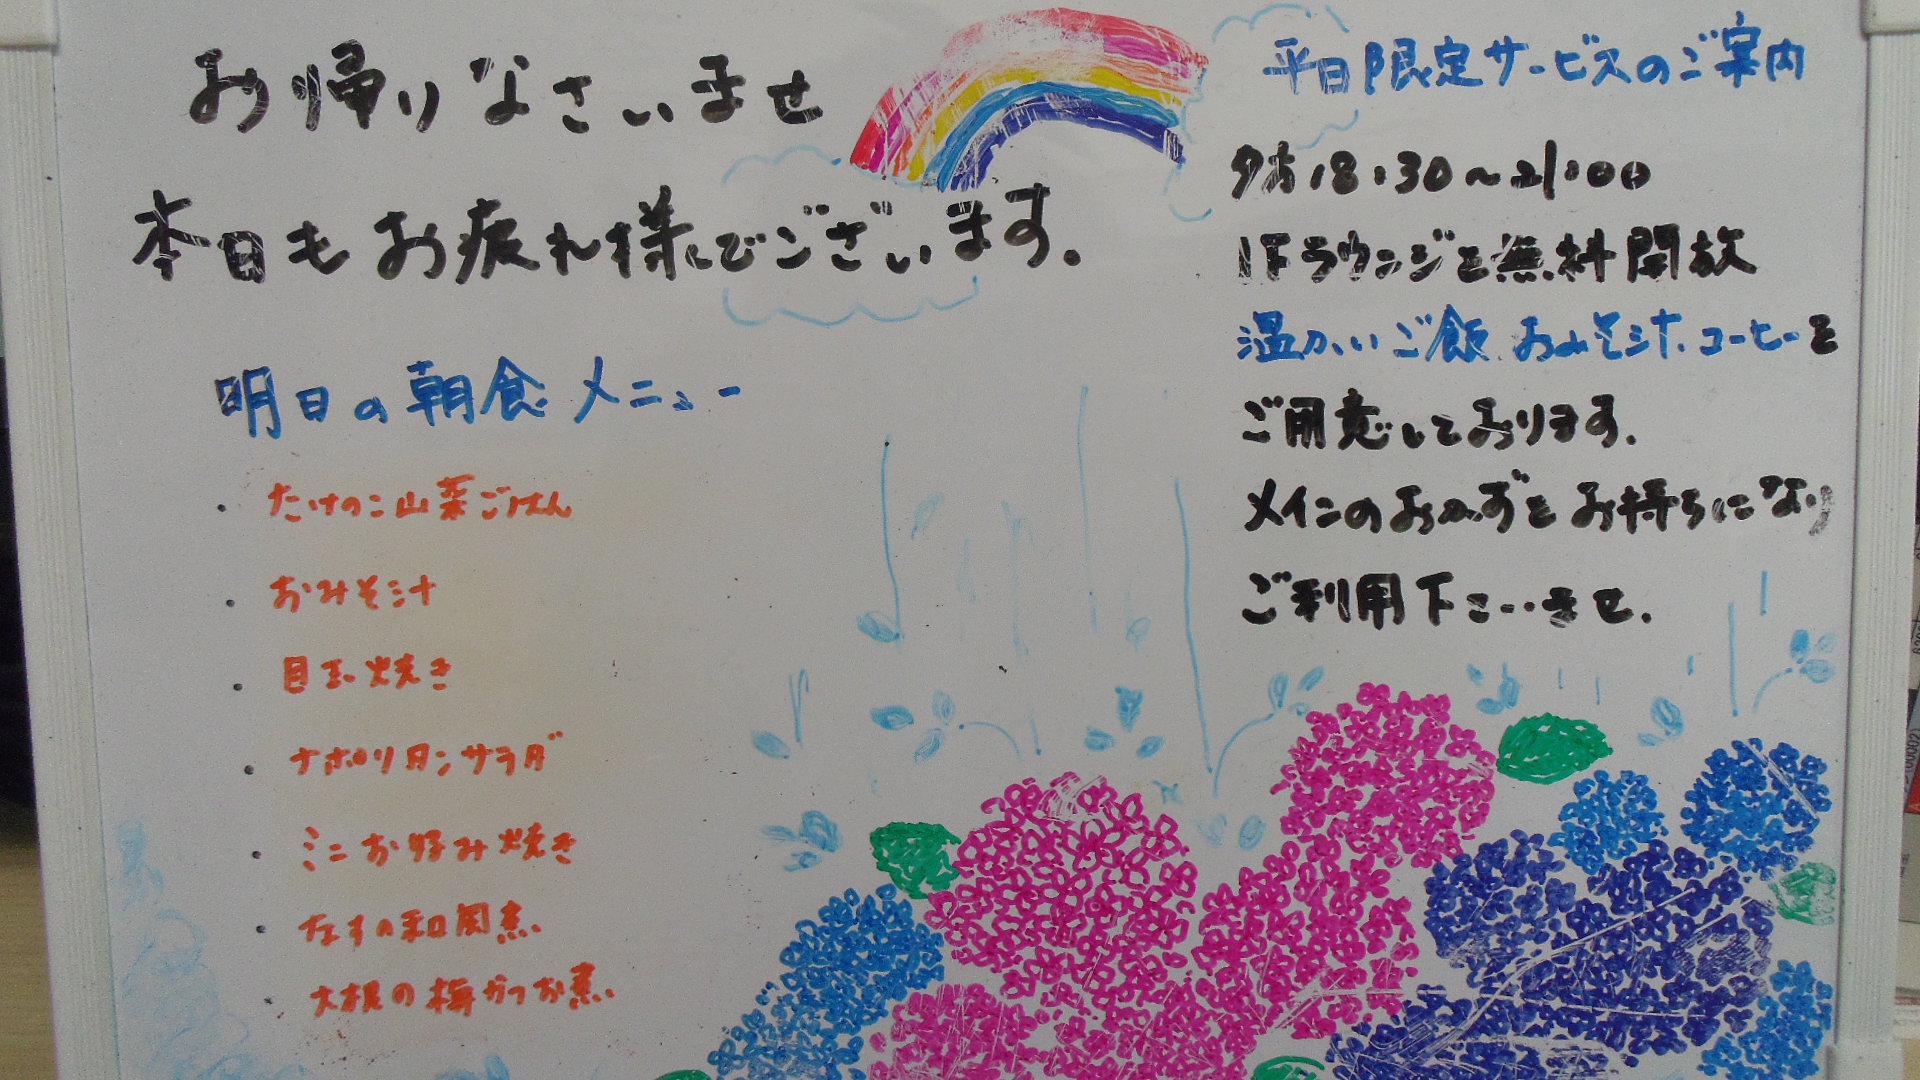 お帰りなさいませ
本日もお疲れ様でございます。
明日の朝食メニュー
・たけのこ山菜ごはん
・おみそ汁
・目玉焼き
・ナポリタンサラダ
・ミニお好み焼き
・なすの和風煮
・大根の梅かつお煮
平日限定サービスのご案内
夕方18:30～21:00
1Fラウンジを無料開放
温かいご飯、おみそ汁、コーヒーを
ご用意しております。
メインのおかずをお持ちになり
ご利用下さいませ。